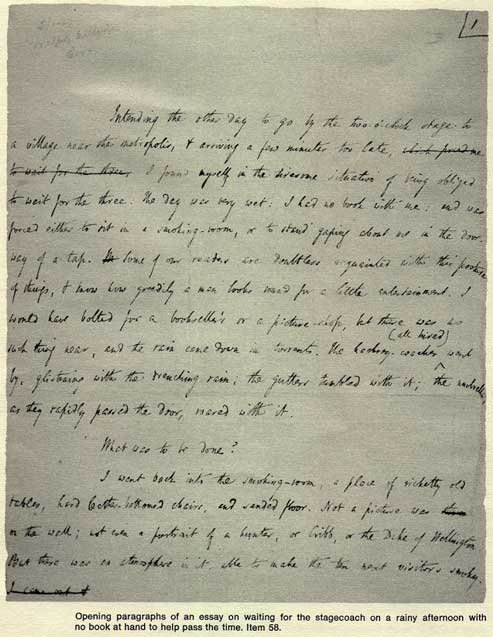 1
Intending the other day to go by the two o'clock stage to
a village near the metropolis, & arriving a few minutes too late, which forced me
to wait for the three, I found myself in the tiresome situation of being obliged
to wait for the three. The day was very wet: I had no book with me: and was
forced either to sit in a smoking-room, or to stand gaping about me in the door-
way of a tap. Some of our readers are doubtless acquainted with this posture
of things, & know how greedily a man looks round for a little entertainment. I
would have bolted for a bookseller's or a picture-shop, but there was no
(all hired)
such thing near, and the rain came down in torrents. The hackney-coaches went
by, glistening with the drenching rain; the gutters tumbled with it; the umbrellas,
as they rapidly passed the door, roared with it.
What was to be done?
I went back into the smoking-room, a place of ricketty old
tables, hard leather-bottomed chairs, and sanded floor. Not a picture was
on the walls; not even a portrait of a hunter, or Cribb, or the Duke of Wellington
But there was an atmosphere in it, able to make the ten next visitors smokey.
I came out &
Opening paragraphs of an essay on waiting for the stagecoach on a rainy afternoon with
no book at hand to help pass the time. Item 58.